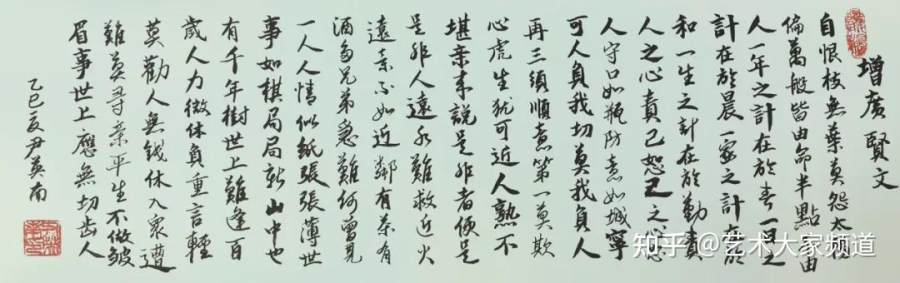 增廣賢文
自恨枝無葉莫怨太陽
偏萬般皆由命半點不由
人一年之計在於春一日之
計在於晨一家之計在於
和一生之計在於勤責
人之心責己恕己之心恕
人守口如瓶防意如城寧
可人負我切莫我負人
再三須慎意第一莫欺
心虎生犹可近人熟不
堪亲来説是非者便是
是非人遠水難救近火
遠亲不如近鄰有茶有
酒多兄弟急難何曾見
一人人情似紙張張薄世
事如棋局局新山中也
有千年樹世上難逢百
歲人力微休負重言輕
莫勸人無錢休入衆遭
難莫尋亲平生不做皺
眉事世上應無切齿人
乙巳夏尹英南
知乎 @艺术大家频道